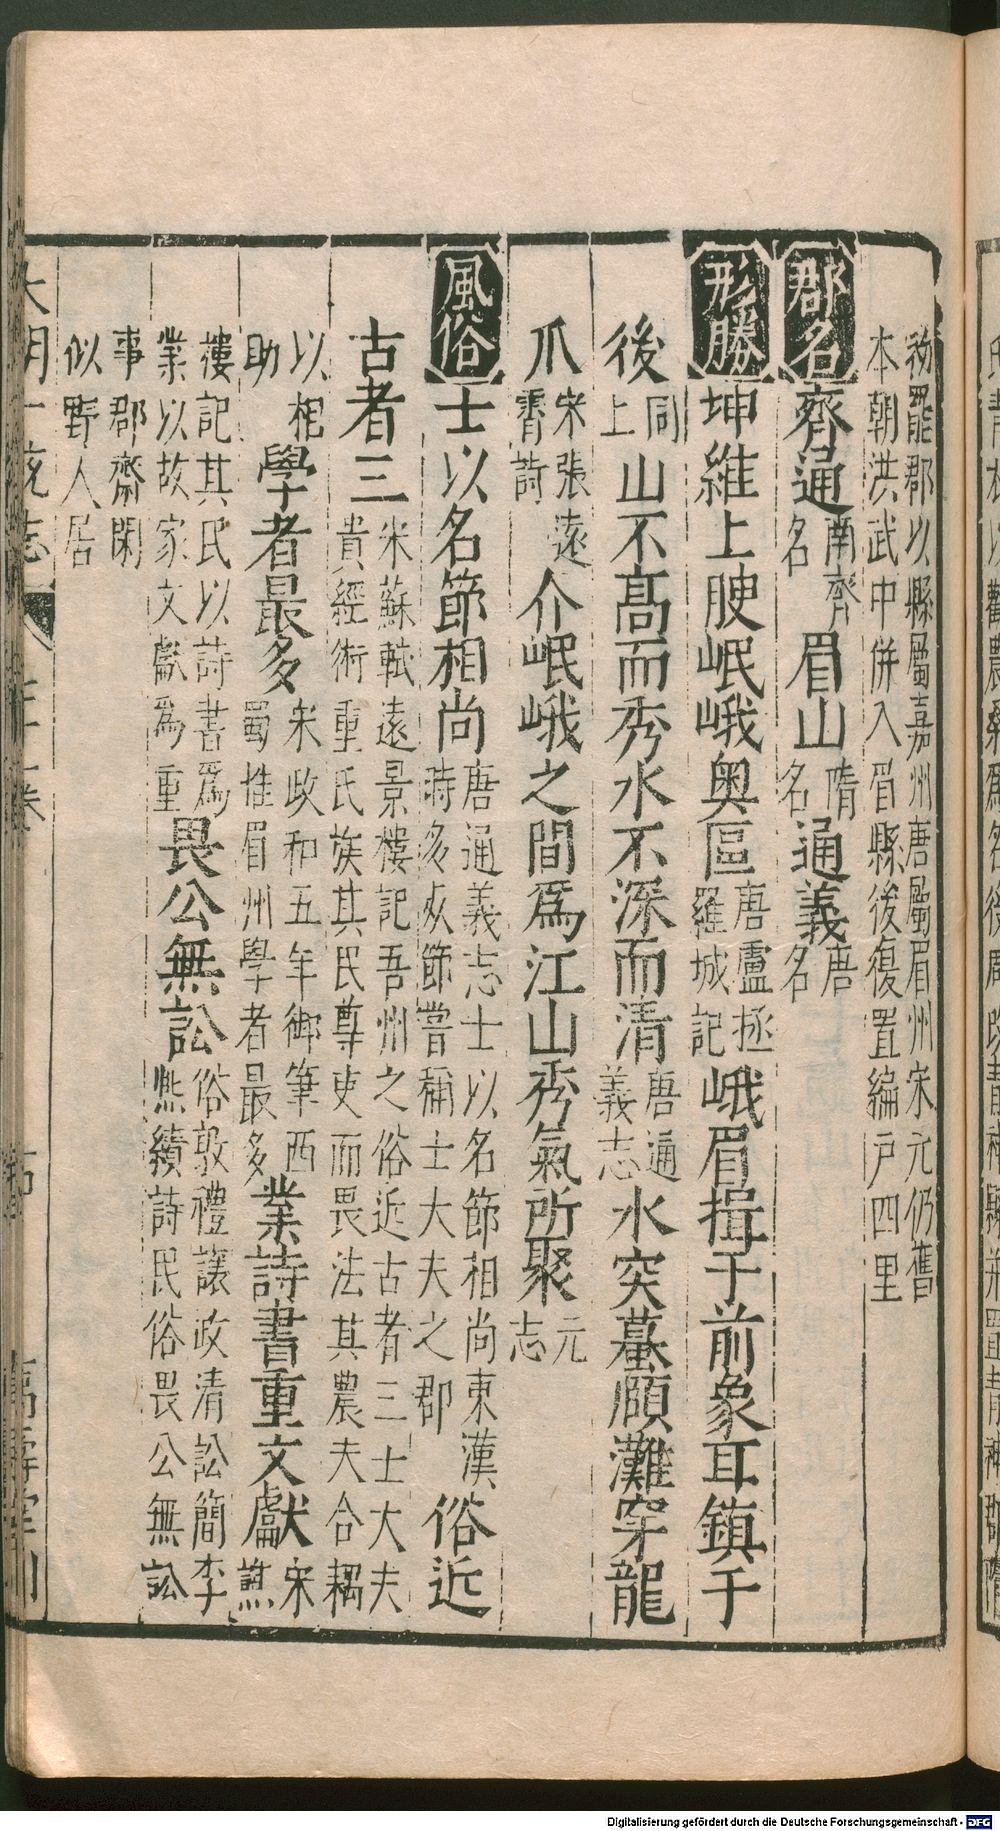 初罷郡以縣屬嘉州唐屬眉州宋元仍舊
本朝洪武中併入眉縣後復置編戶四里
郡名 齊通 南齊名 眉山 隋名 通義 唐名
形勝 坤維上腴岷峨奥區 唐盧拯羅城記 峨眉揖于前象耳鎮于
後 同上 山不髙而秀水不深而清 唐通義志 水突蟇頥灘穿龍
爪 宋張遠霄詩 介岷峨之間爲江山秀氣所聚 元志
風俗 士以名節相尚 唐通義志士以名節相尚東漢時多处節嘗稱士大夫之郡 俗近
古者三 宋蘇軾遠景樓記吾州之俗近古者三士大夫貴經術重氏族其民尊吏而畏法其農夫合耦
以相助 學者最多 宋政和五年御筆西蜀惟眉州學者最多 業詩書重文獻 宋譙
樓記其民以詩書爲業以故家文獻爲重 畏公無訟 俗敦禮讓政清訟簡李熙績詩民俗畏公無訟
事郡齋閑似野人居
大明一統志
萬壽堂刊